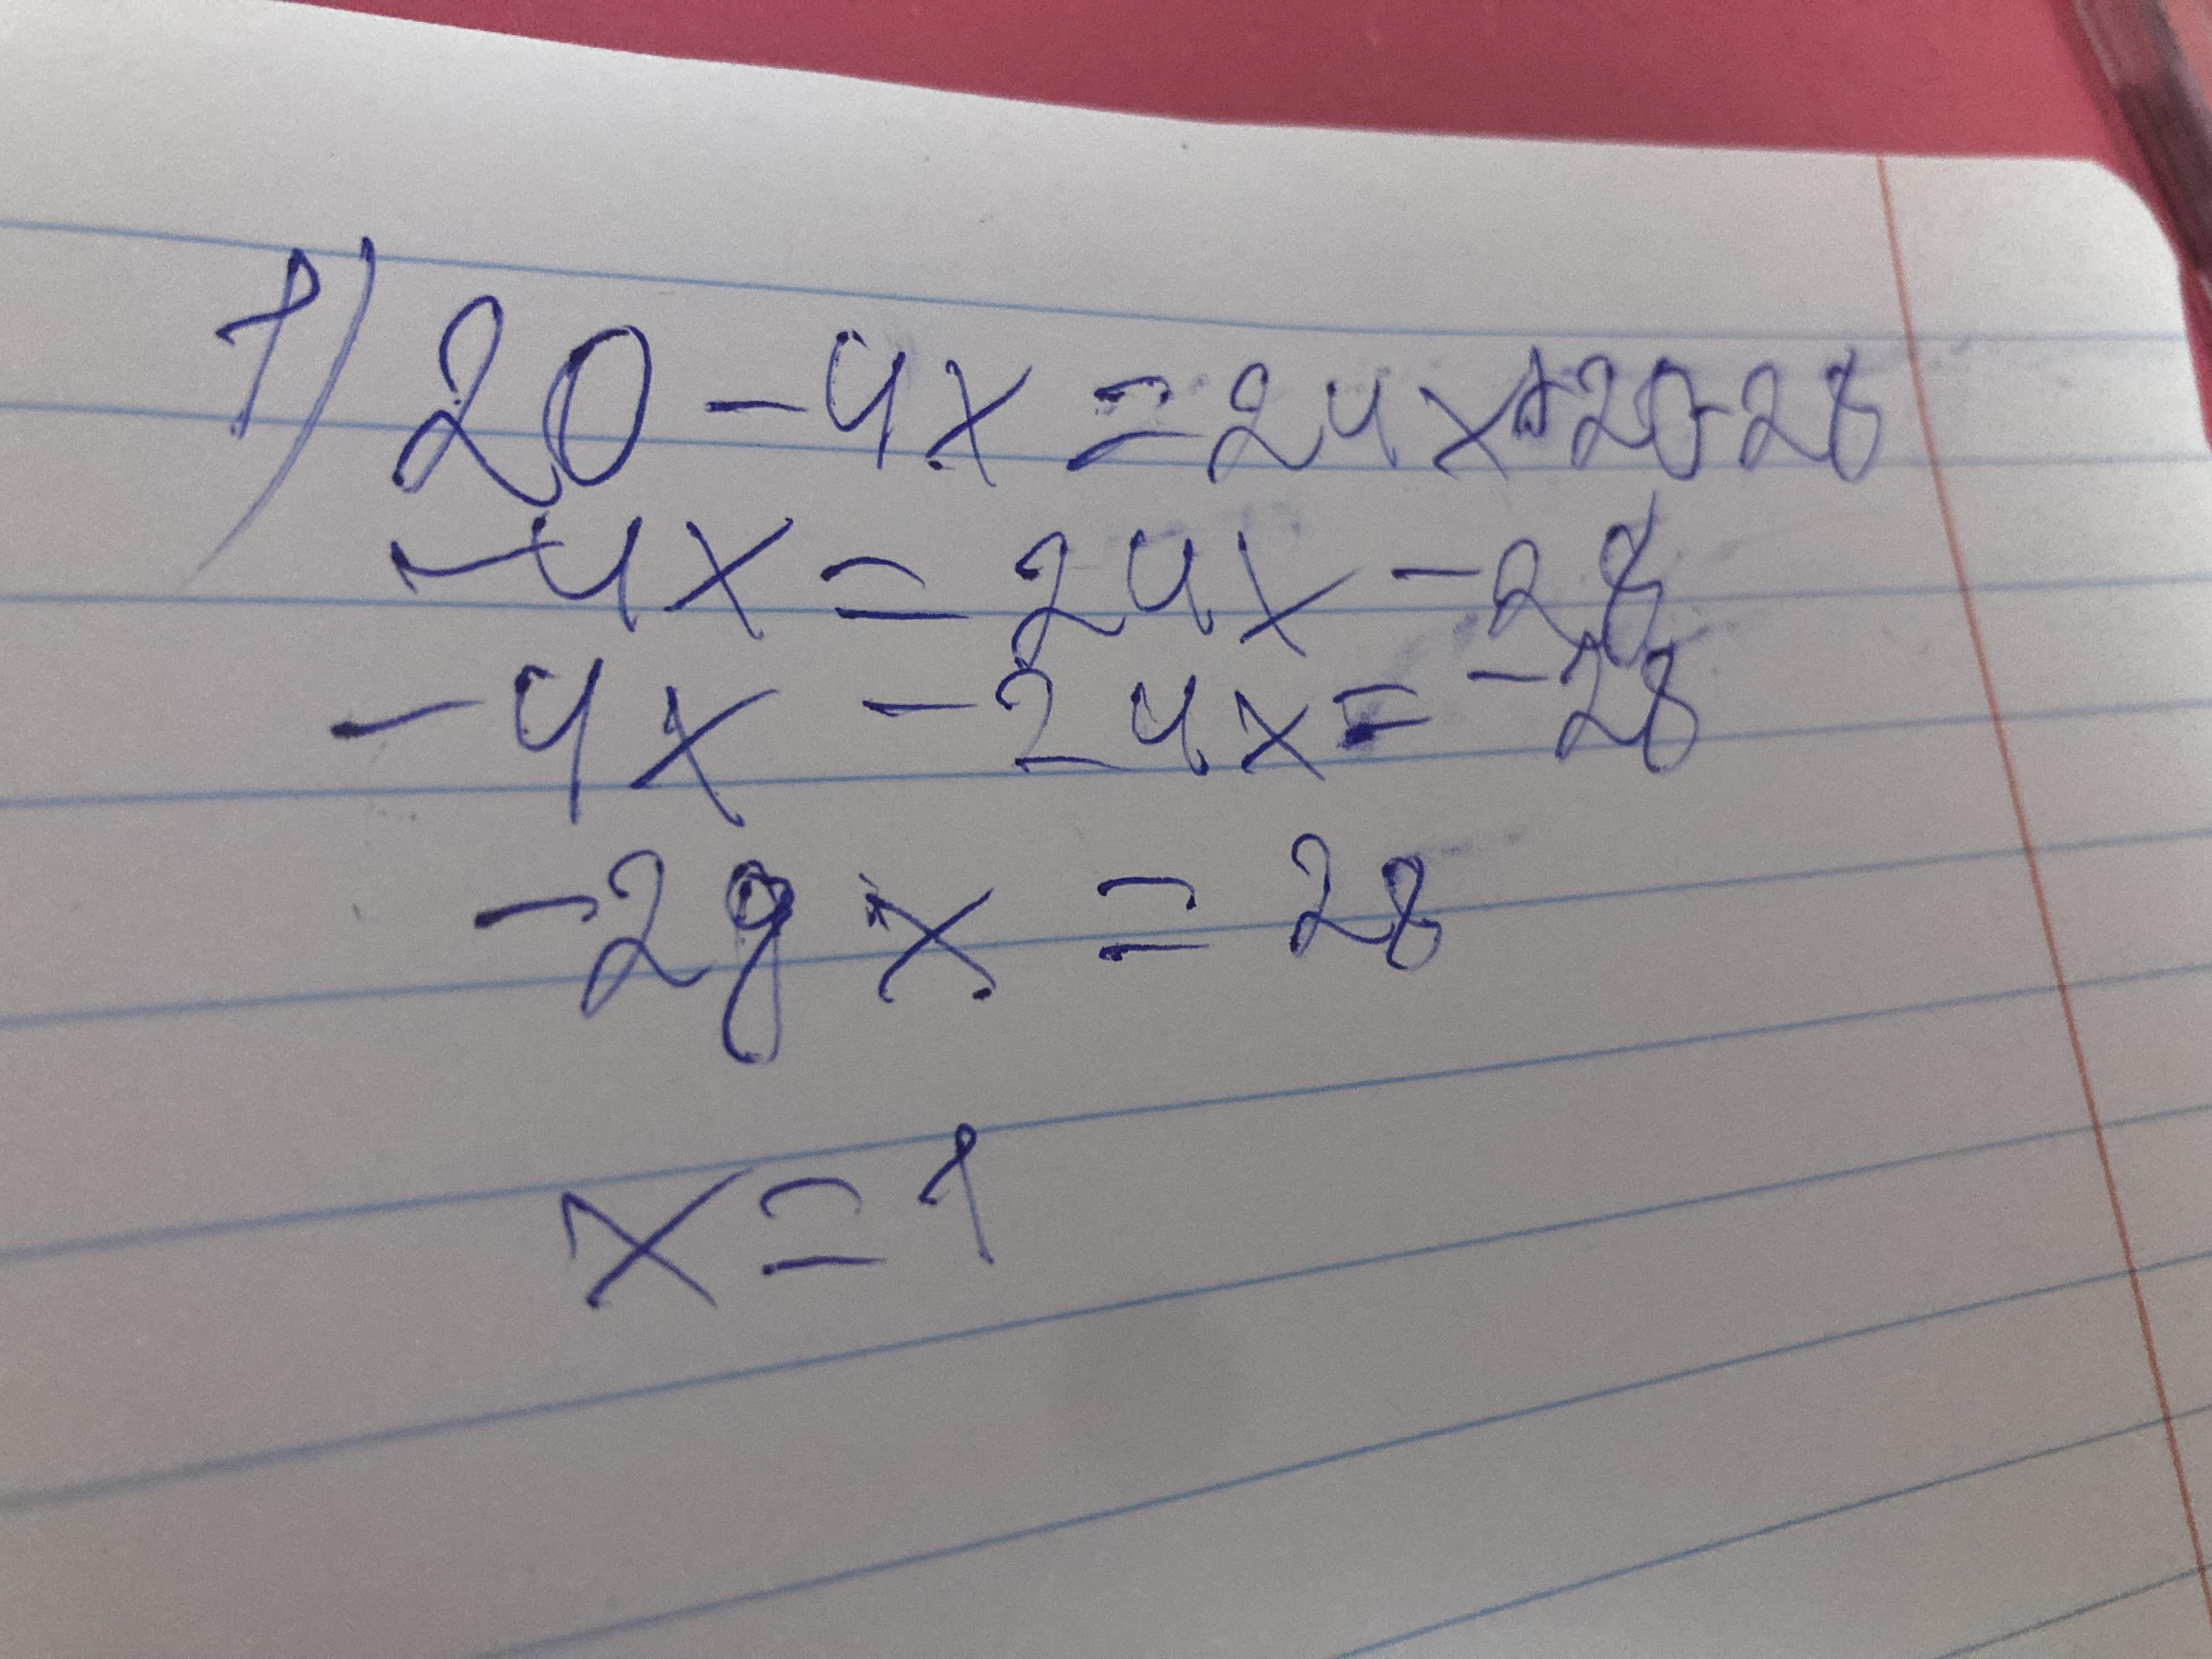 1) 20 - 4x = 24x + 20 - 28
-4x = 24x - 28
-4x - 24x = -28
-28x = 28
x = 1